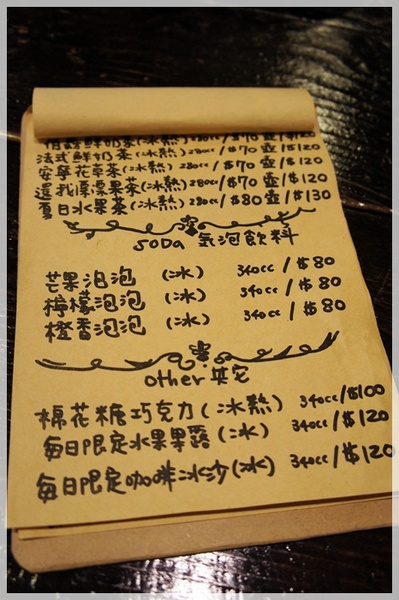 伯爵鮮奶茶(冰熱) 280cc/$70 壺/$120
法式鮮奶茶(冰熱) 280cc/$70 壺/$120
安寧花草茶(冰熱) 280cc/$70 壺/$120
還我漂漂果茶(冰熱) 280cc/$70 壺/$120
夏日水果茶(冰熱) 280cc/$80 壺/$130
SODa 氣泡飲料
芒果泡泡 (冰) 340cc/$80
檸檬泡泡 (冰) 340cc/$80
橙香泡泡 (冰) 340cc/$80
other 其它
棉花糖巧克力(冰熱) 340cc/$100
每日限定水果果露(冰) 340cc/$120
每日限定咖啡冰沙(冰) 340cc/$120